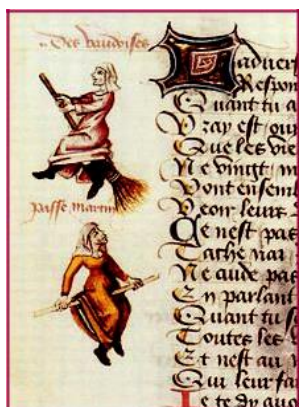 Des vaudoises
passe martin
L aduers
Respon
Quant tu a
Vray est / ou
Que les vie
Ne vingt / n
Vont ensem
Veoir leurs
Ce nest pas
Sache nar
Ne cuide pas
En parlant
Quant tu s
Toutes les
Et nest au
Qui leur fa
Je te dy quo